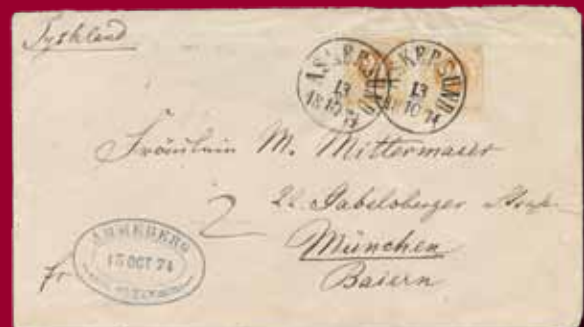 Tyskland
ASKERSUND
13
10
1874
ASKERSUND
13
10
1874
Fräulein M. Mittermaser
2 22 Gabelsberger
München
Baiern
AMMEBERG
15 OCT 74
fr